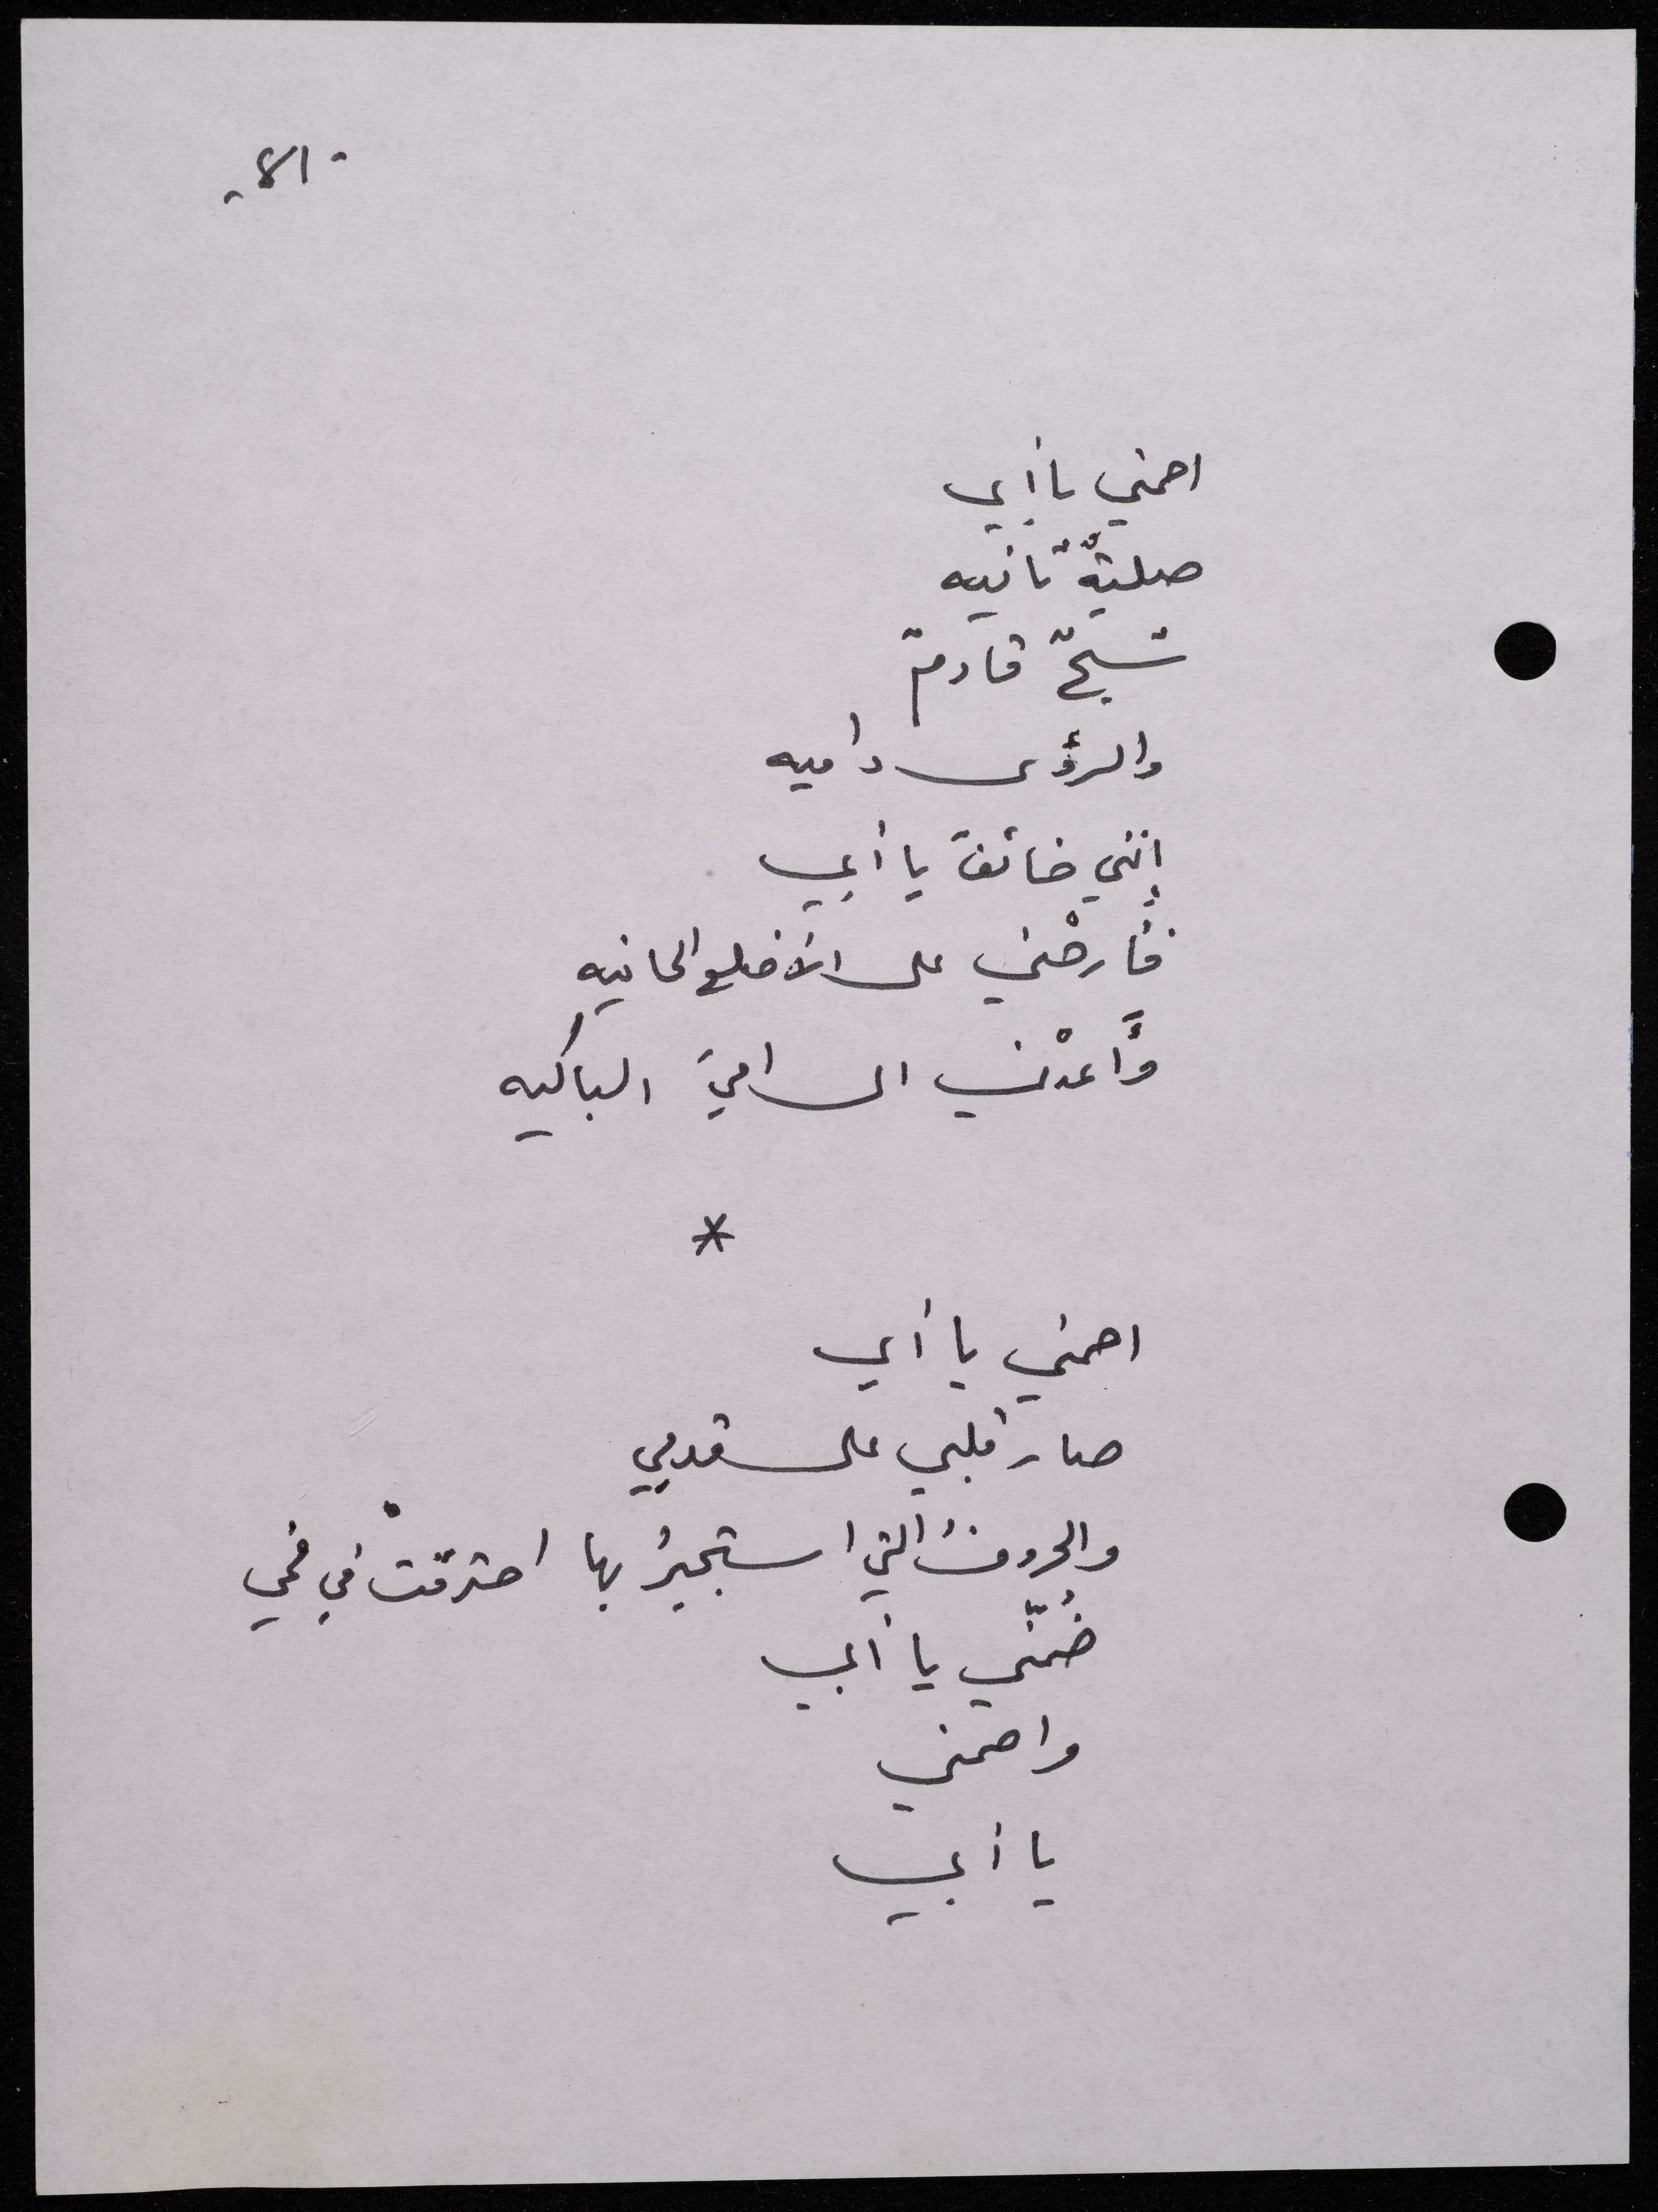 احمني يا أبي
صليةٌ ثانيه
شبحٌ قادمٌ
والرؤى داميه
إنني خائفٌ يا أبي
فأرحْني على الأضلع الحانيه
وأعدْني الى اميَ الباكيه
*
احمني يا أبي
صار قلبي على قدمي
والحروفُ التي استجيرُ بها احترقتْ في فمي
ضُمّني يا أبي
واحمني
يا أبي